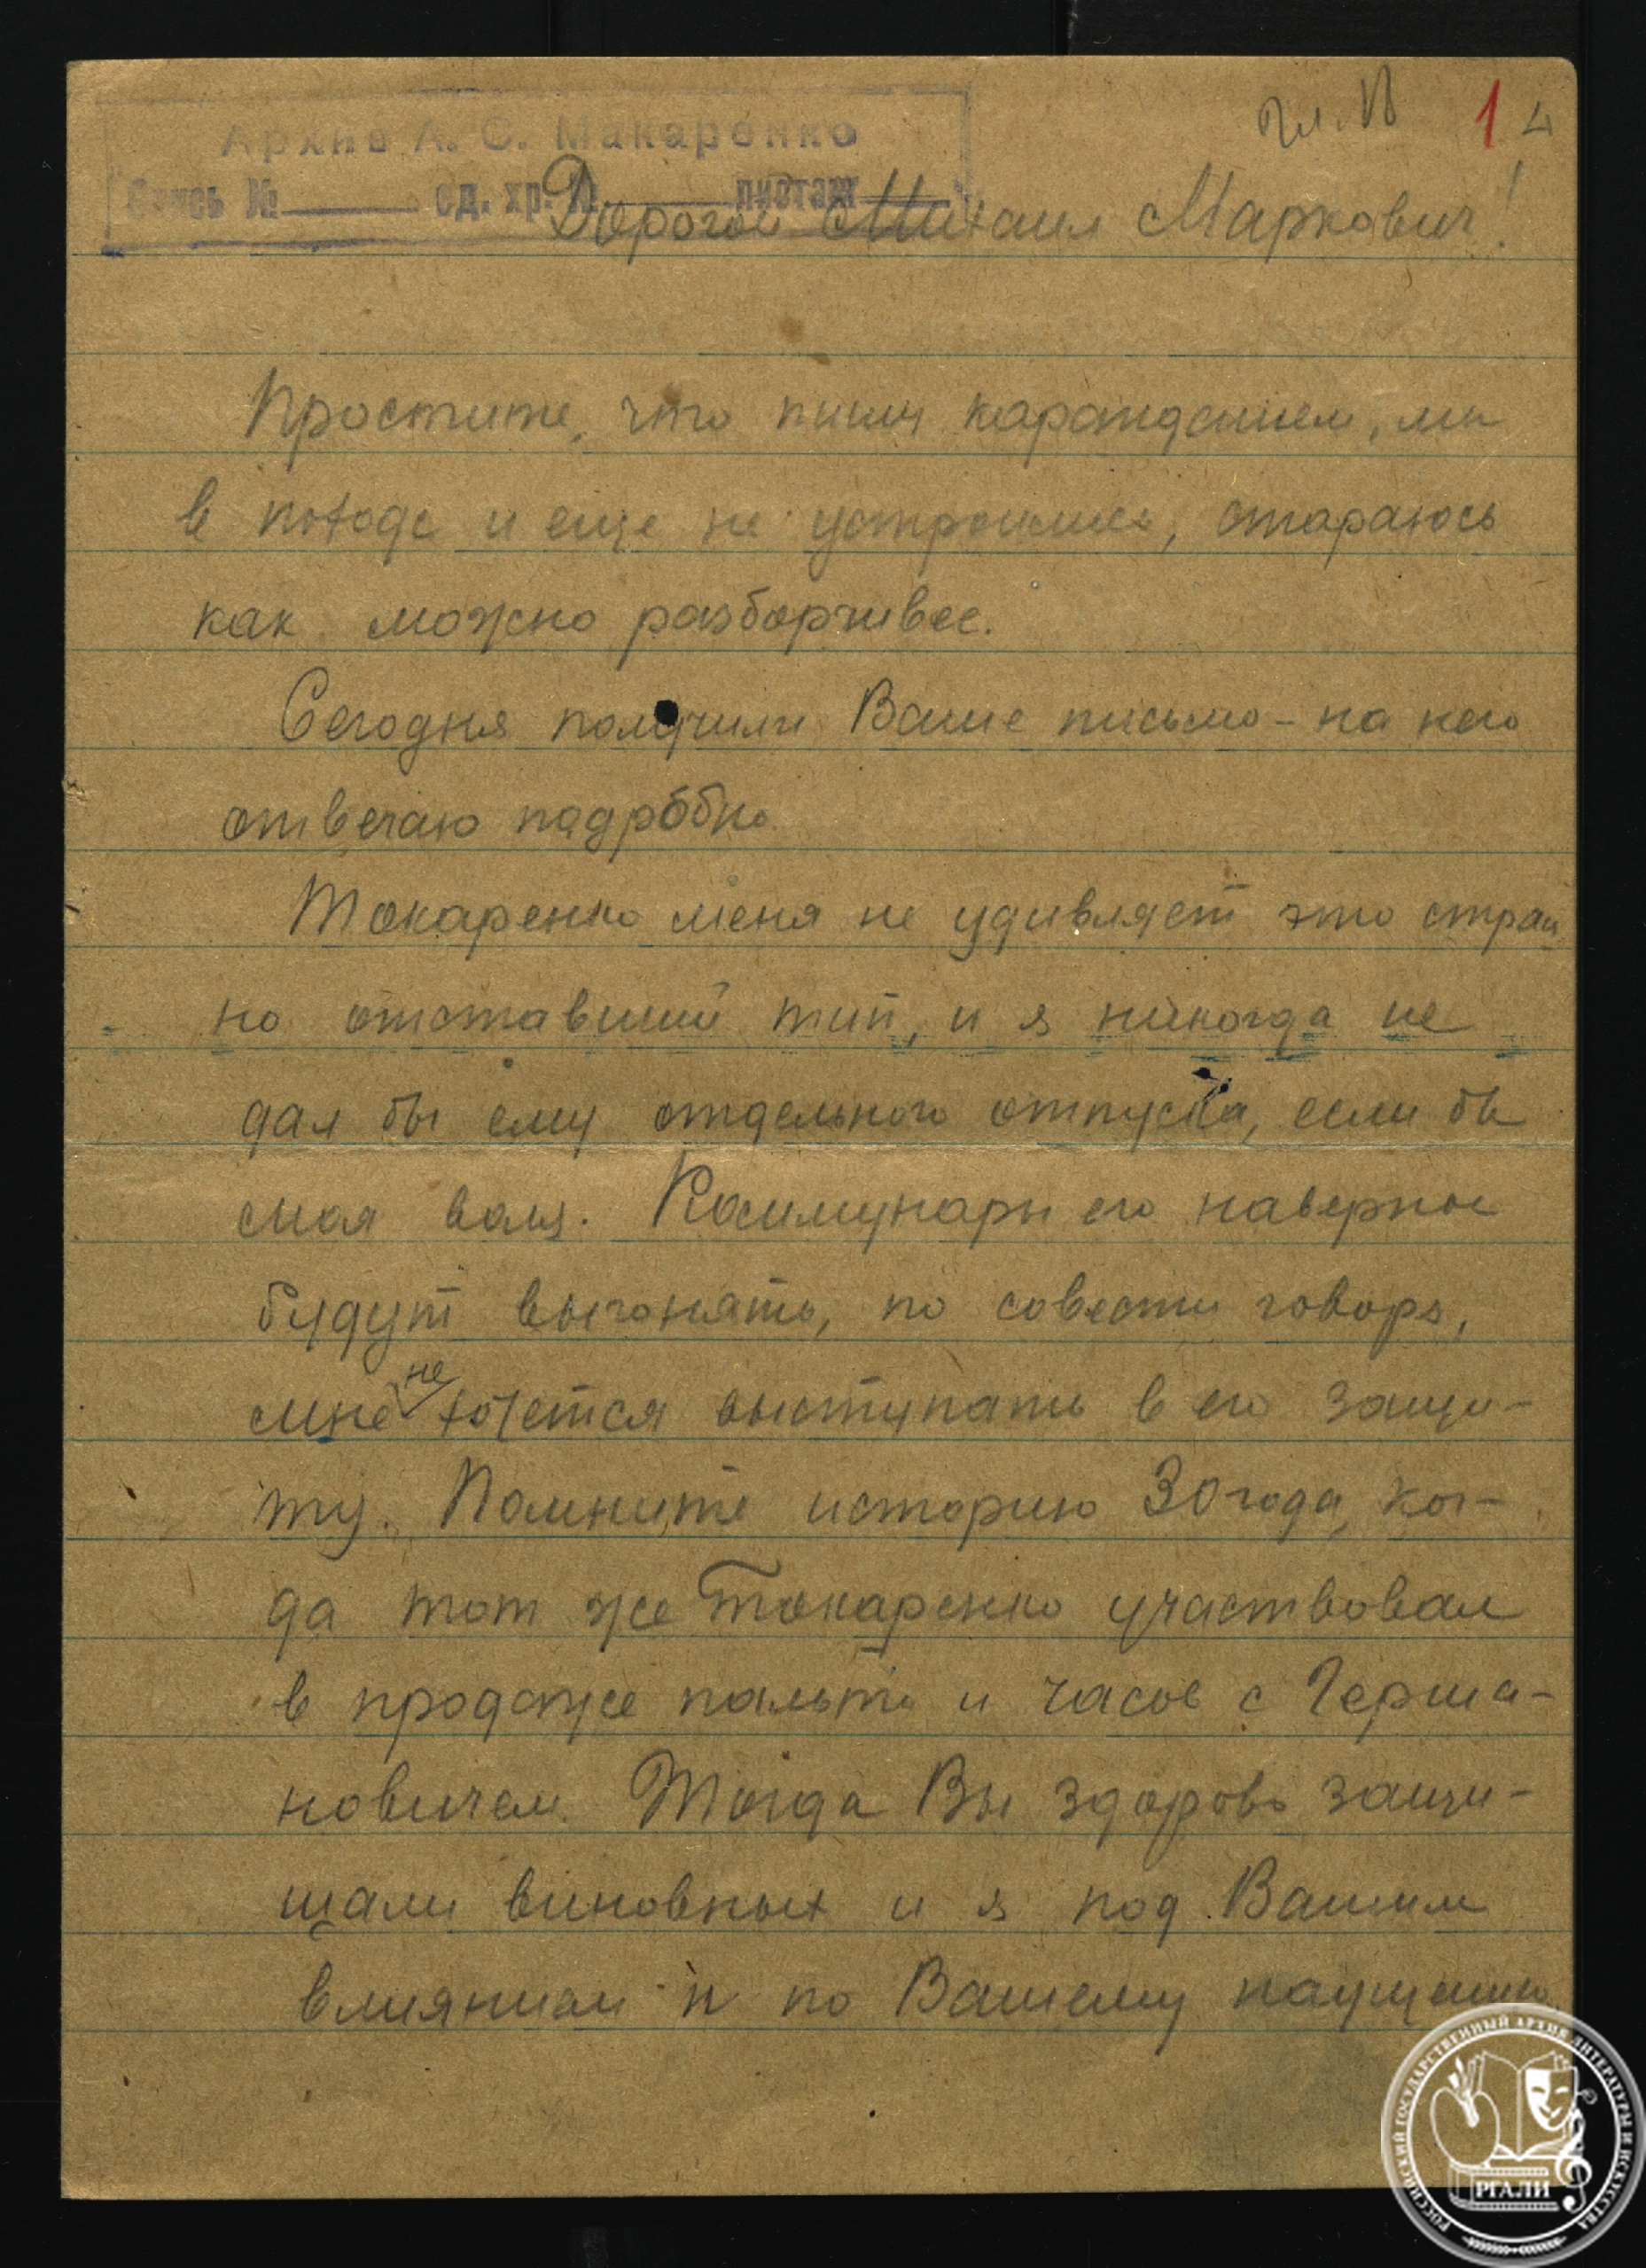 Архив А. С. Макаренко
Опись № ед. хр. № листаж
1 4
Дорогой Михаил Маркович!
Простите, что пишу карандашем, мы
в походе и еще не устроились, стараюсь
как можно разборчивее.
Сегодня получили Ваше письмо - на него
отвечаю подробно.
Токаренко меня не удивляет это страш
но отставший тип, и я никогда не
дал бы ему отдельного отпуска, если бы
моя воля. Коммунары его наверное
будут выгонять, по совести говоря,
мне не хочется выступать в его защи-
ту. Помните историю 30 года, ког-
да тот же Токаренко участвовал
в продаже пальто и часов с Герша-
новичем. Тогда Вы здорово защи-
щали виновных и я под Вашим
влиянием и по Вашему наущению
РОССИЙСКИЙ ГОСУДАРСТВЕННЫЙ АРХИВ ЛИТЕРАТУРЫ И ИСКУССТВА
РГАЛИ